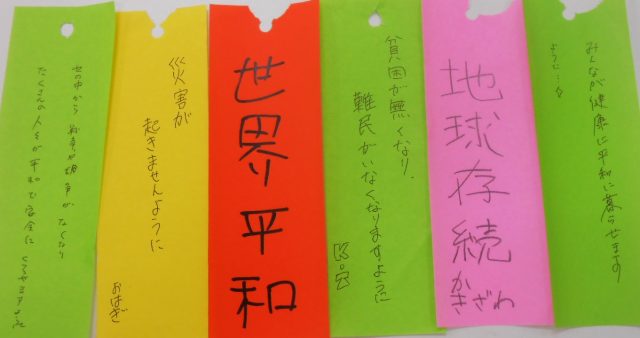 みんなが健康に平和に暮らせます
ように…☆
地球存続
かきざわ
貧困が無くなり、
難民がいなくなりますように
世界平和
災害が
起きませんように
おはぎ
世の中から 戦争や紛争が なくなり
たくさんの人々が平和で安全に くらせますように